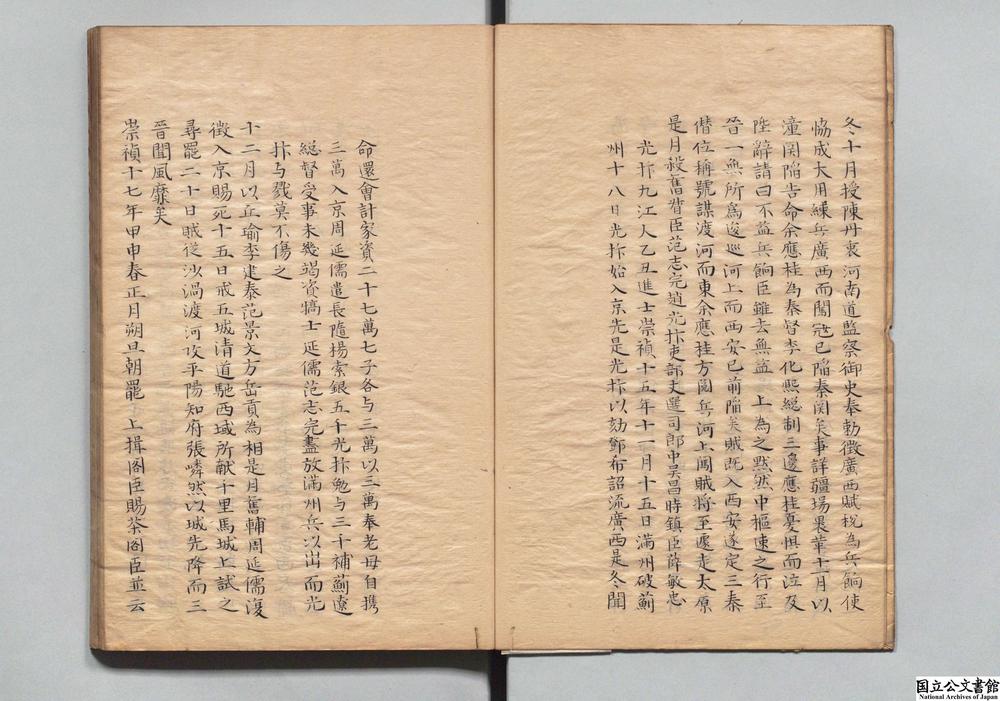 冬十月授陳丹衷河南道監察御史奉勅徵廣西賦稅為兵餉使
恊成大用練兵廣西而闖冦已陷秦関矣事詳疆塲畏葷十一月以
潼関陷告命余應桂為秦督李化熙緫制三邊應桂憂惧而泣及
陛辭請曰不益兵餉臣雖去無益　上為之黙然中樞速之行至
晉一無所為逡巡河上而西安已前陥矣賊既入西安遂定三秦
僣位稱號謀渡河而東余應桂方閱兵河上闖賊将至遽走太原
是月殺舊督臣范志完趙光抃吏部文選司郎中吴昌時鎮臣薛敏忠
光抃九江人乙丑進士崇禎十五年十一月十五日滿州破薊
州十八日光抃始入京先是光抃以劾鄧希詔流廣西是冬聞
命還會計家資二十七萬七子各与三萬以三萬奉老母自携
三萬入京周延儒遣長隨揚索銀五千光抃勉与三千補薊遼
緫督受事未幾竭資犒士延儒范志完盡放滿州兵以出而光
抃与戮莫不傷之
十二月以丘瑜李建泰范景文方岳貢為相是月舊輔周延儒復
徴入京賜死十五日戒五城清道馳西域所献千里馬城上試之
尋罷二十日賊從沙渦渡河攻平陽知府張嶙然以城先降而三
晉聞風靡矣
崇禎十七年甲申春正月朔旦朝罷　上揖閣臣賜茶閣臣並云
国立公文書館
National Archives of Japan